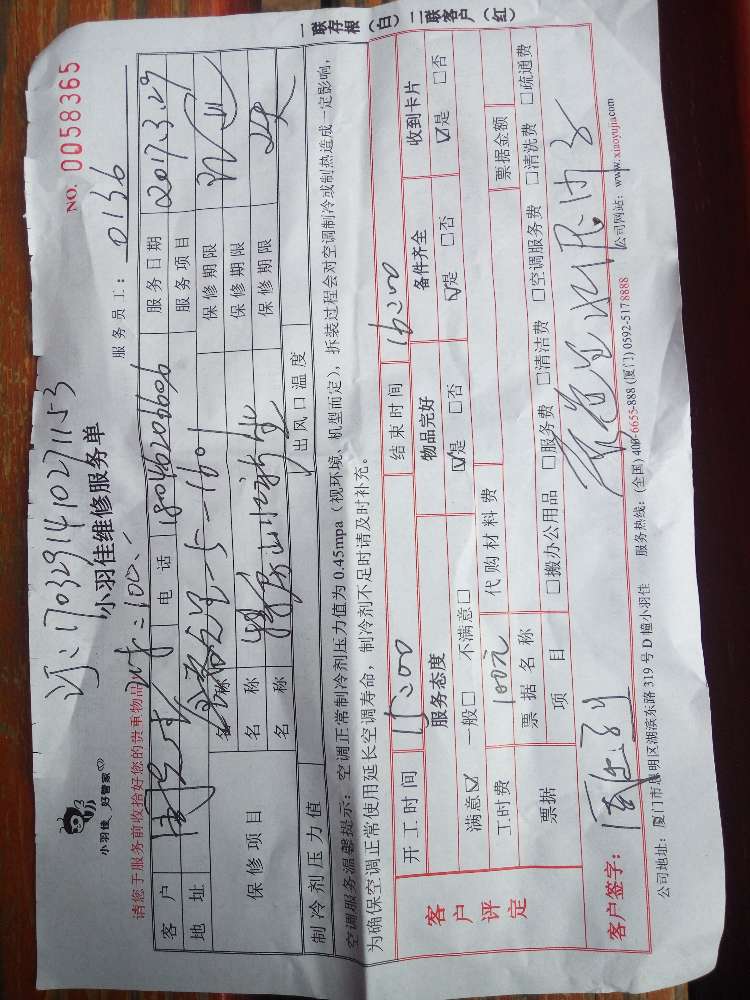 订:170329141027153
小羽佳 好管家
小羽佳维修服务单
NO. 0058365
请您于服务前收拾好您的贵重物品 :100.-
服务员工: 0136
客户 电话 18046206606 服务日期 2017.3.29
地址 5-1601 服务项目
保修项目 名称 保修期限
名称 保修期限
名称 保修期限
制冷剂压力值 出风口温度
空调服务温馨提示: 空调正常制冷剂压力值为0.45mpa(视环境、机型而定),拆装过程会对空调制冷或制热造成一定影响,
为确保空调正常使用延长空调寿命,制冷剂不足时请及时补充。
一联存根(白)二联客户(红)
客户评定
开工时间 15:00 结束时间 16:00
服务态度 物品完好 备件齐全 收到卡片
满意☑ 一般□ 不满意□ ☑是 □否 ☑是 □否 ☑是 □否
工时费 100元 代购材料费 票据金额
票据 票据名称
项目 □搬办公用品 □服务费 □清洁费 □空调服务费 □清洗费 □疏通费
客户签字:
公司地址: 厦门市思明区湖滨东路319号D幢小羽佳 服务热线:(全国)400-6655-888 (厦门)0592-5178888 公司网站: www.xiaoyujia.com